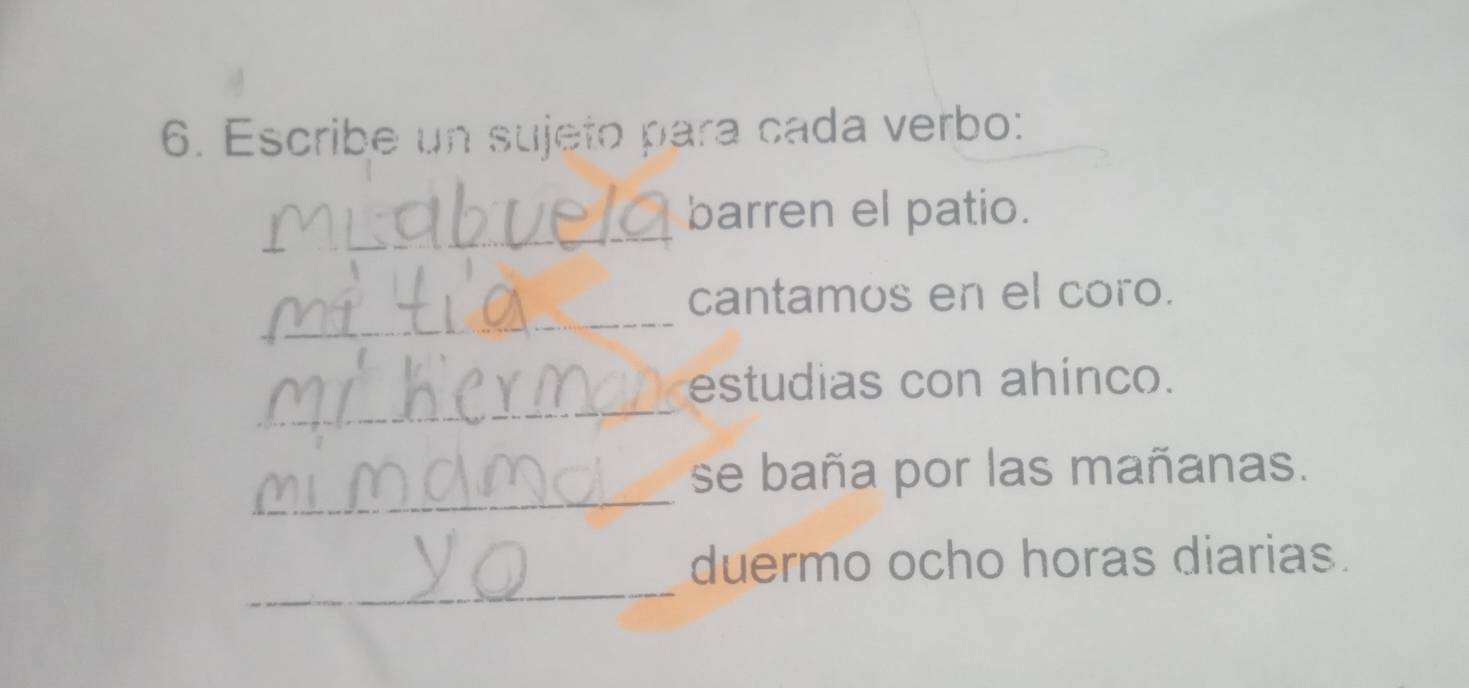 6. Escribe un sujeto para cada verbo:
mi abuela barren el patio.
mi tía cantamos en el coro.
mi hermana estudias con ahínco.
mi mamá se baña por las mañanas.
yo duermo ocho horas diarias.